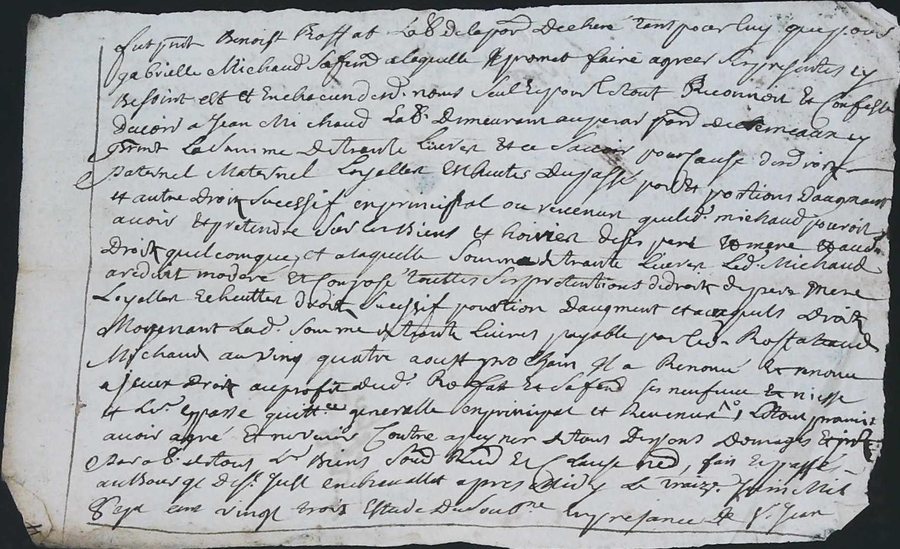 fut pnt Benoist Roffat Lab. de la par. De chere tant pour luy que pour
gabrielle Michaud Sa fend a laquelle Il promet faire agreer Ses presentes Sy
Besoint est et En chacun des. noms Seul Et pour le tout Reconnoit Et Confesse
Devoir a Jean Michaud Lab. Demeurant au perar par. de
pnt La Somme de trante Livres Et ce Savoir pour Cause de Ses droits
paternel Maternel Loyelles Et heutes Du passé part Et portions Daugment
et autre Droit Successif en principal ou revenu que led. michaud pouroit
avoir Et pretendre Sur les Biens et hoiries de Ses pere Et mere Et autre
Droit quelconque, et a laquelle Somme de trante Livres Led. Michaud
a reduit modere Et Composé touttes Ses pretentions de droit de pere mere
Loyelles Et heuttes droit Successif portion Daugment et acquis Droit
Moyenant Lad. Somme de trante Livres payable par led. Roffat aud.
Michaud au vingt quatre aoust prochain Il a Renoncé Et renonce
a jceux Droit au profit dud. Roffat Et Sa fend Ses neufveu Et niesse
et Leur passe quittce generalle en principal et Revenus, Le tout promis
avoir agré Et ne venir Contre a peyne de tous Depans Domages Et
par ob. de tous Leurs Biens Soud Rend Et Clause Red, fait Et passé
au Bourg de St Just en chevallet apres Midy Le traize Juin Mil
Sept Cent vingt trois Estude Du Soubne En presance de Sr Jean